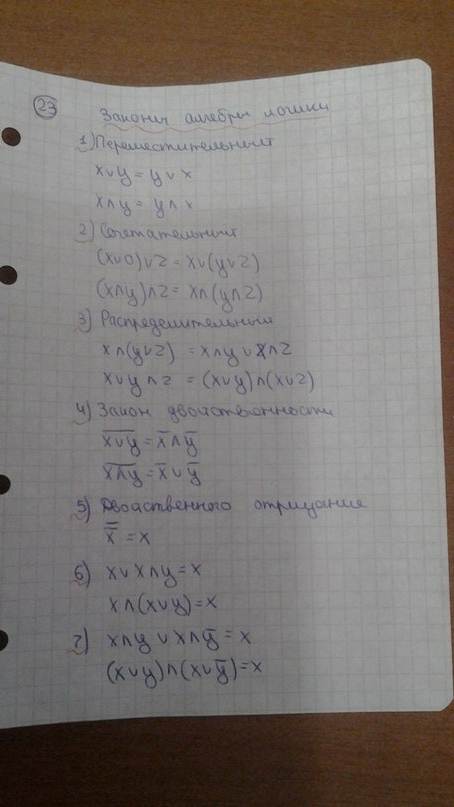 23
Законы алгебры логики
1) Переместительный
x∨y = y∨x
x∧y = y∧x
2) Сочетательный
(x∨0)∨z = x∨(y∨z)
(x∧y)∧z = x∧(y∧z)
3) Распределительный
x∧(y∨z) = x∧y∨x∧z
x∨y∧z = (x∨y)∧(x∨z)
4) Закон двойственности
x̅∨̅y̅ = x̅∧y̅
x̅∧̅y̅ = x̅∨y̅
5) Двойственного отрицание
x̿ = x
6) x∨x∧y = x
x∧(x∨y) = x
7) x∧y∨x∧y̅ = x
(x∨y)∧(x∨y̅) = x